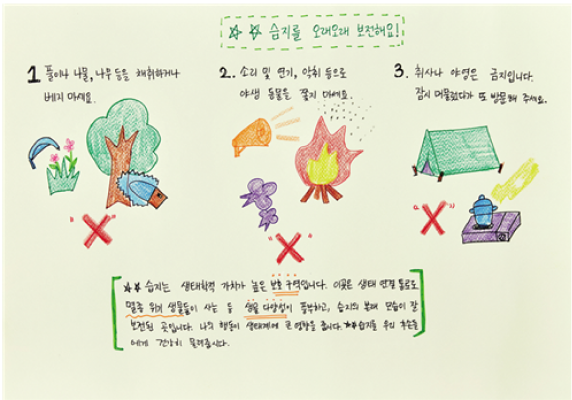 ☆☆ 습지를 오래오래 보전해요!
1 풀이나 나물, 나무 등을 채취하거나
베지 마세요.
2. 소리 및 연기, 악취 등으로
야생 동물을 쫓지 마세요.
3. 취사나 야영은 금지입니다.
잠시 머물렀다가 또 방문해 주세요.
☆☆ 습지는 생태학적 가치가 높은 보호 구역입니다. 이곳은 생태 연결 통로로
멸종 위기 생물들이 사는 등 생물 다양성이 풍부하고, 습지의 본래 모습이 잘
보전된 곳입니다. 나의 행동이 생태계에 큰 영향을 줍니다. ☆☆습지를 우리 후손들
에게 건강히 물려줍시다.